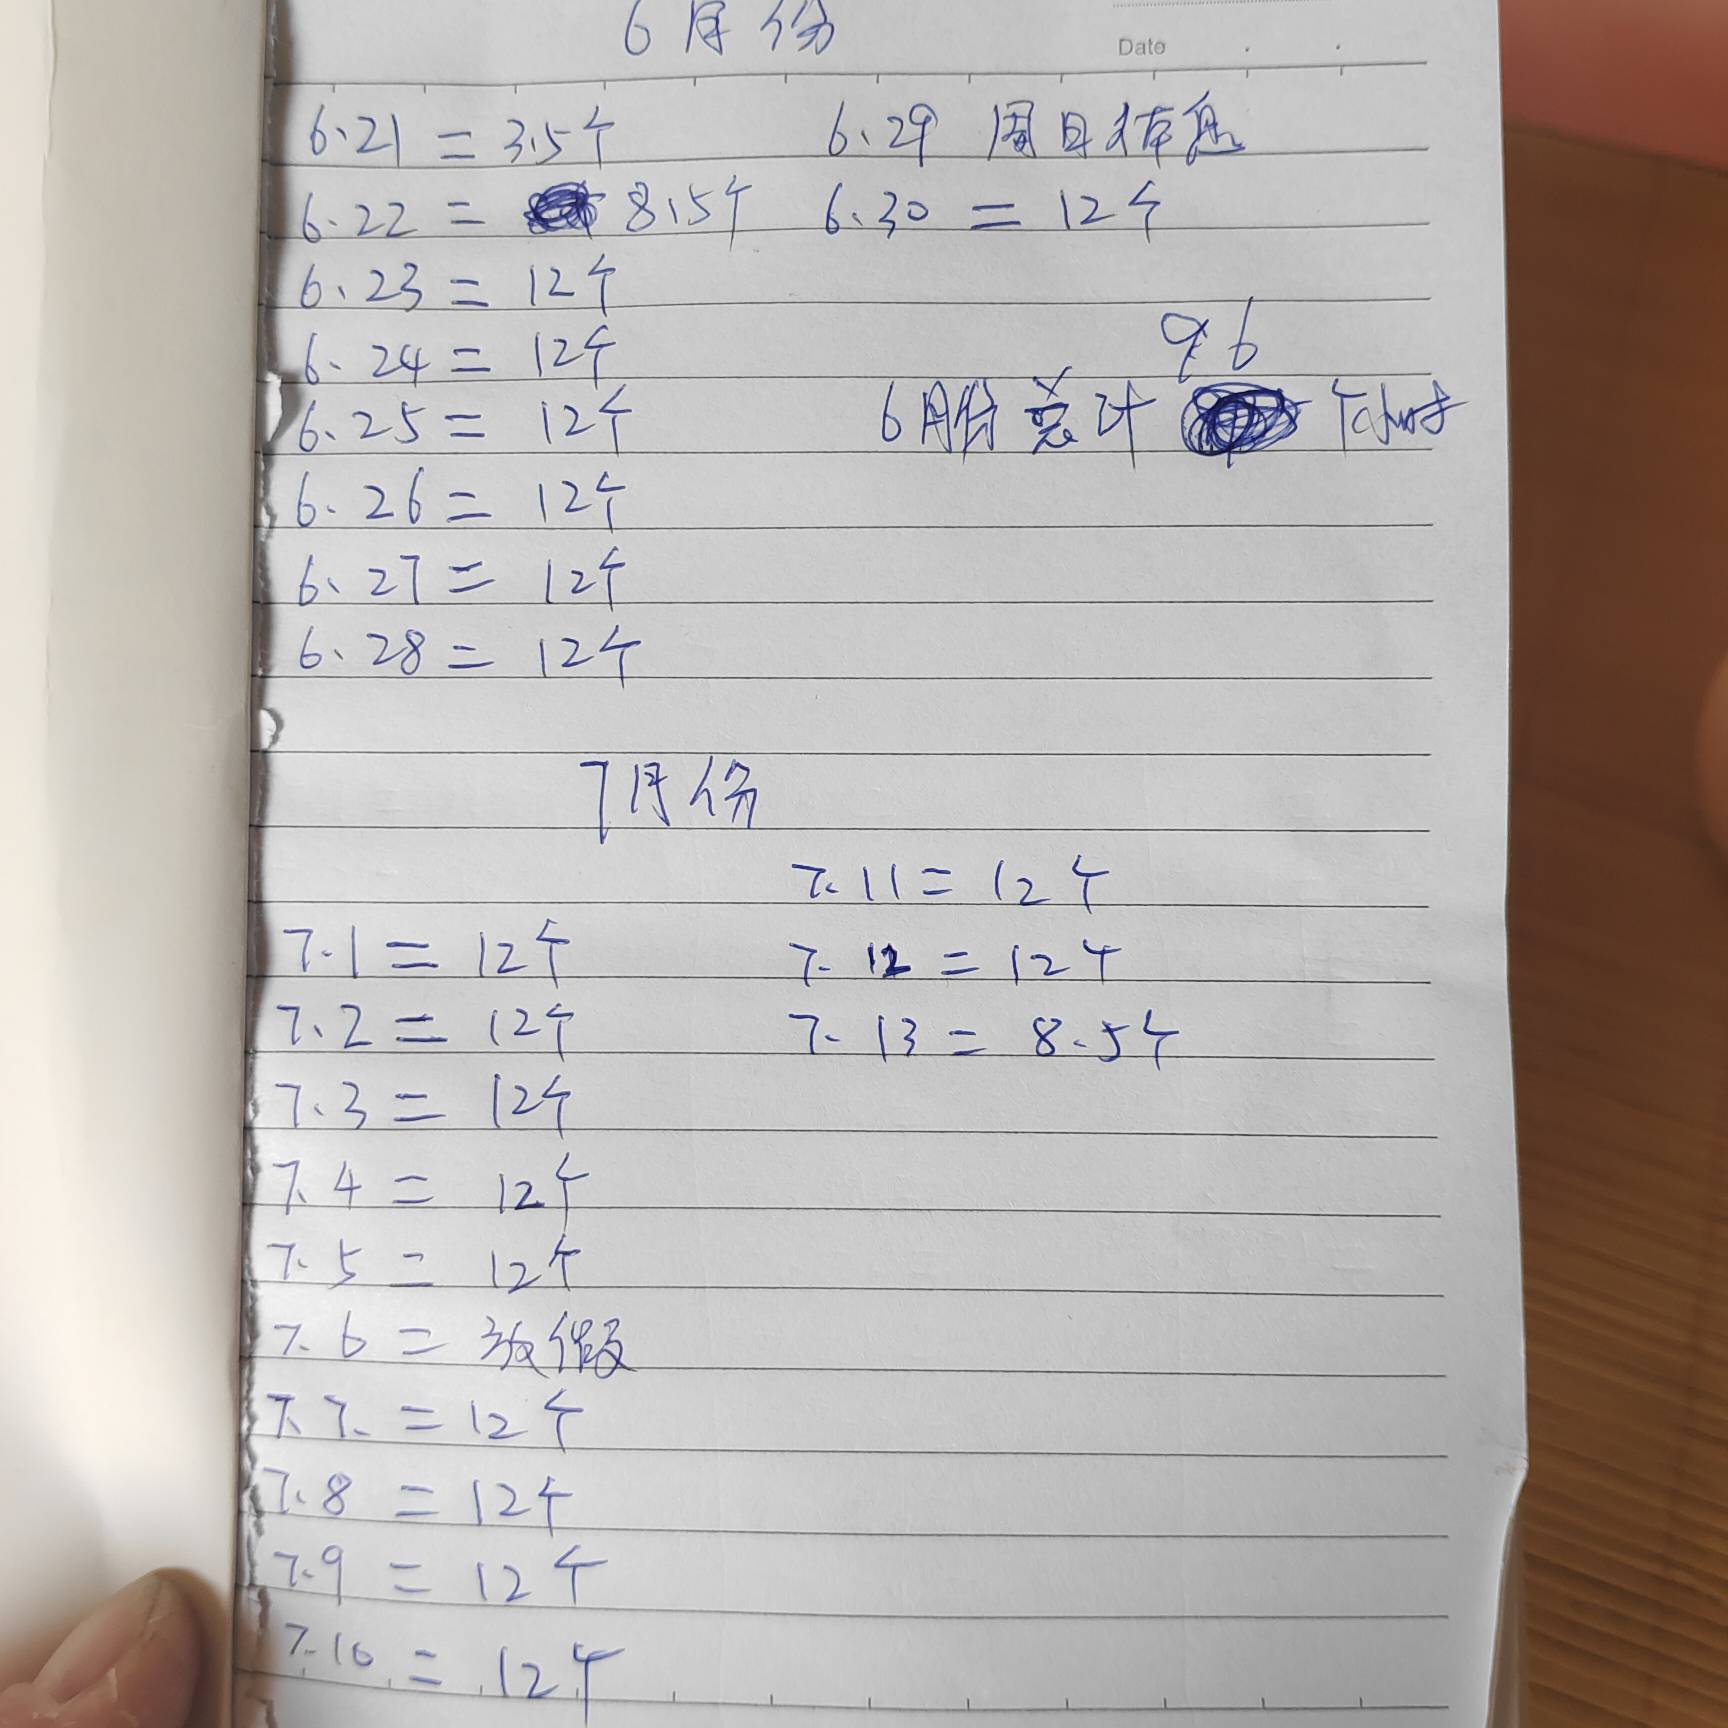 6月份
Date
6.21 = 3.5个
6.22 = 8.5个
6.23 = 12个
6.24 = 12个
6.25 = 12个
6.26 = 12个
6.27 = 12个
6.28 = 12个
6.29 周日休息
6.30 = 12个
96
6月份总计 个小时
7月份
7.1 = 12个
7.2 = 12个
7.3 = 12个
7.4 = 12个
7.5 = 12个
7.6 = 放假
7.7. = 12个
7.8 = 12个
7.9 = 12个
7.10 = 12个
7.11 = 12个
7.12 = 12个
7.13 = 8.5个